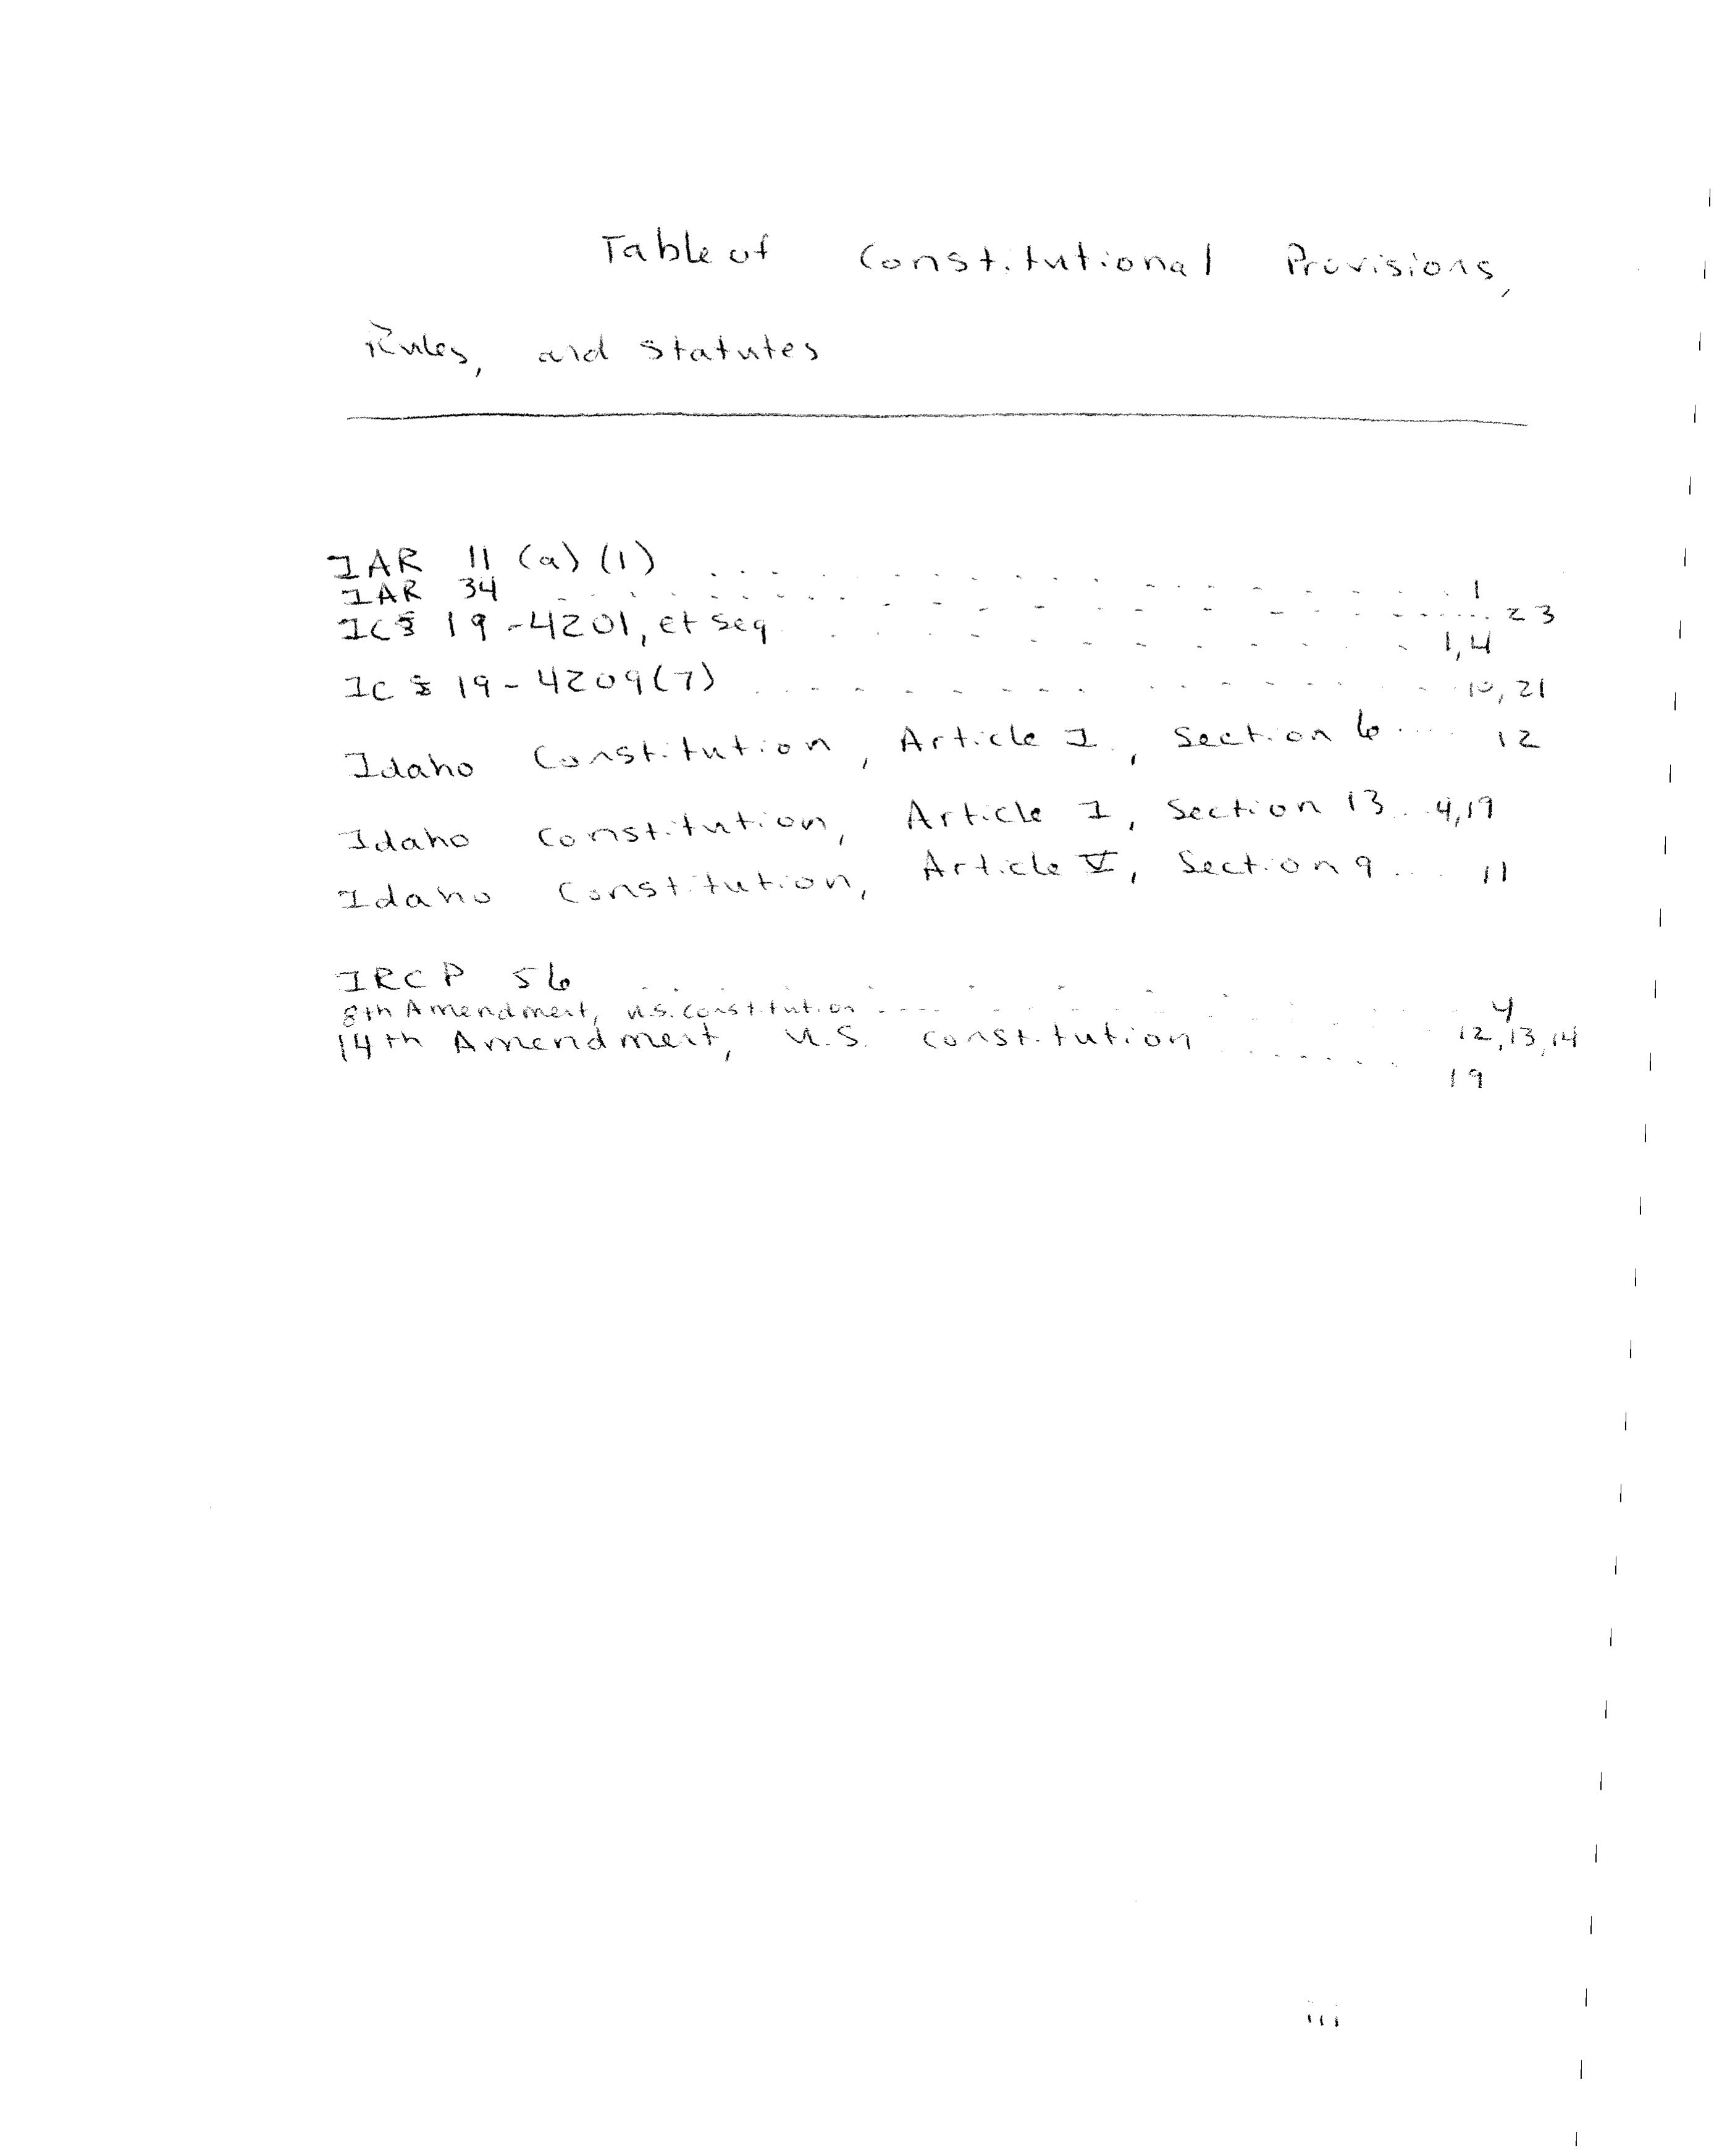 Table of Constitutional Provisions,
Rules, and Statutes
IAR 11 (a) (1) . . . . . . . . . . . . . . 1
IAR 34 . . . . . . . . . . . . . . 23
IC § 19-4201, et seq . . . . . . . . . . . 1,4
IC § 19-4209(7) . . . . . . . . . . . . . 10, 21
Idaho Constitution, Article I, Section 6 .... 12
Idaho Constitution, Article I, Section 13 ... 4,19
Idaho Constitution, Article V, Section 9 .... 11
IRCP 56 . . . . . . . . . . . 4
8th Amendment, U.S. Constitution . . . . . . . . . 12,13,14
14th Amendment, U.S. Constitution . . . . . . . 19
iii